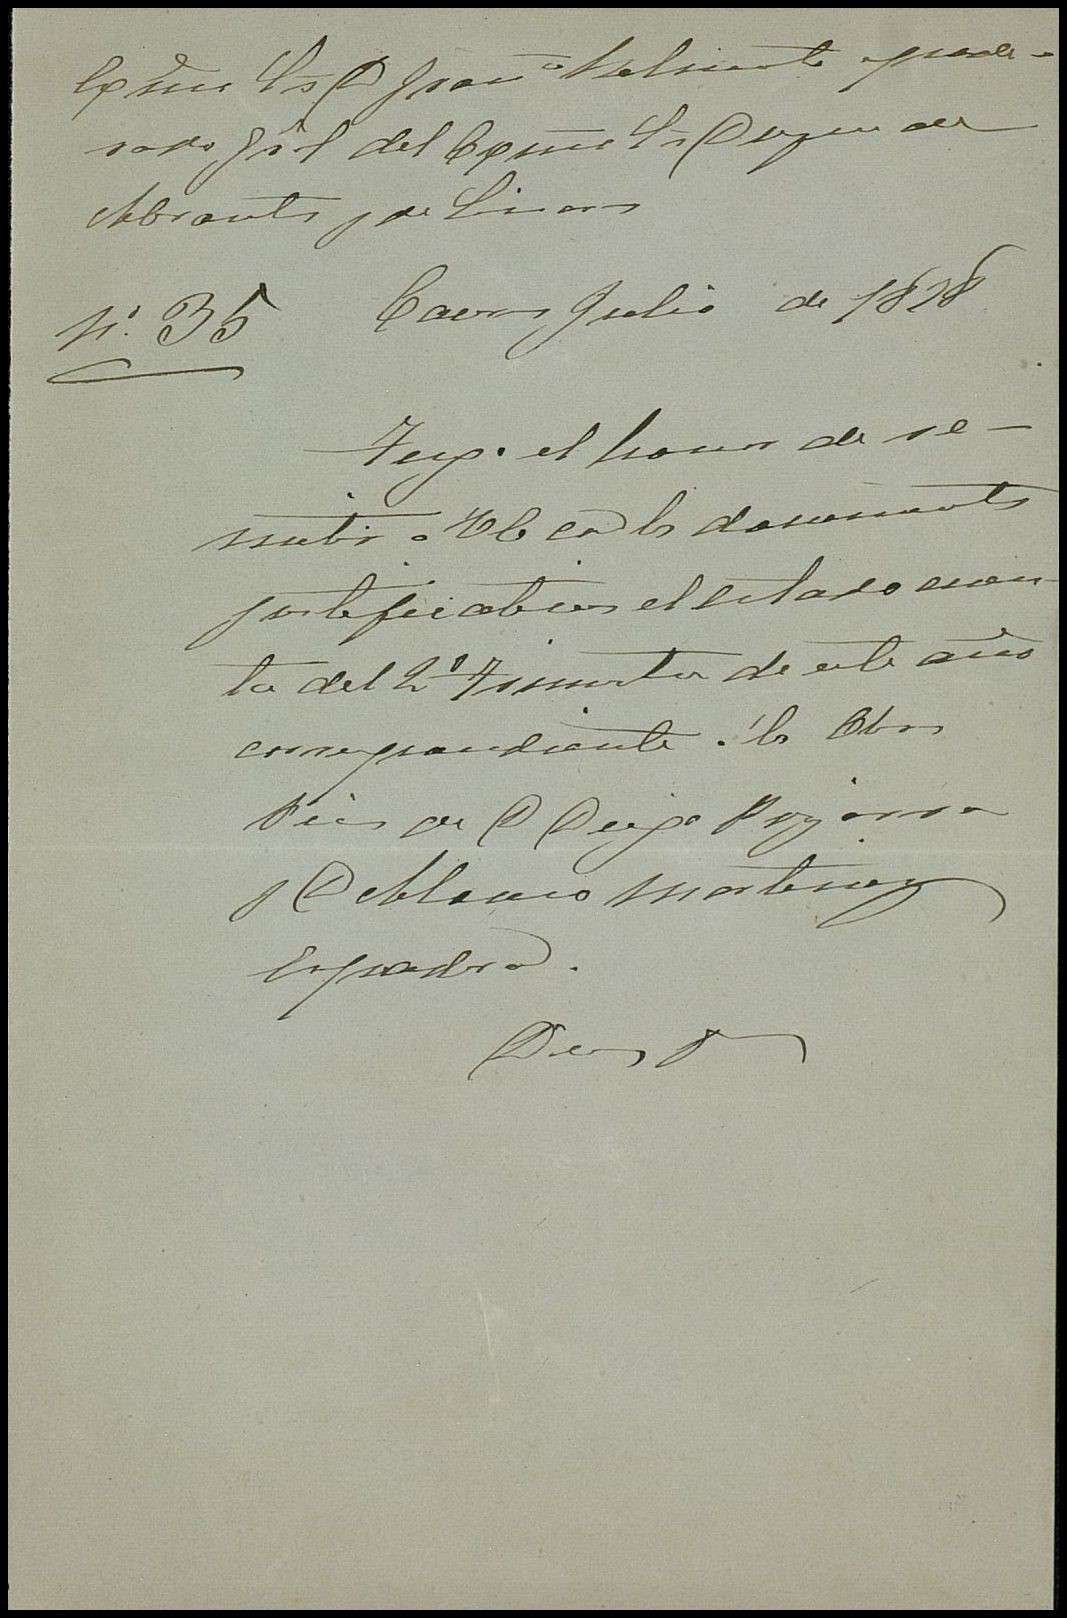 Exmo Sr D Juan Valiente apode-
rado Gral del Exmo Sr Duque de
Abrantes y de Linares
Nº. 35 Julio de 1878
Tengo el honor de re-
mitir a VE con los documentos
justificativos el estado cuen-
ta del 2º Trimestre de este año
correspondiente á las Obras
Pias de D Diego
y D Alonso Martinez
Espadero.
Dios